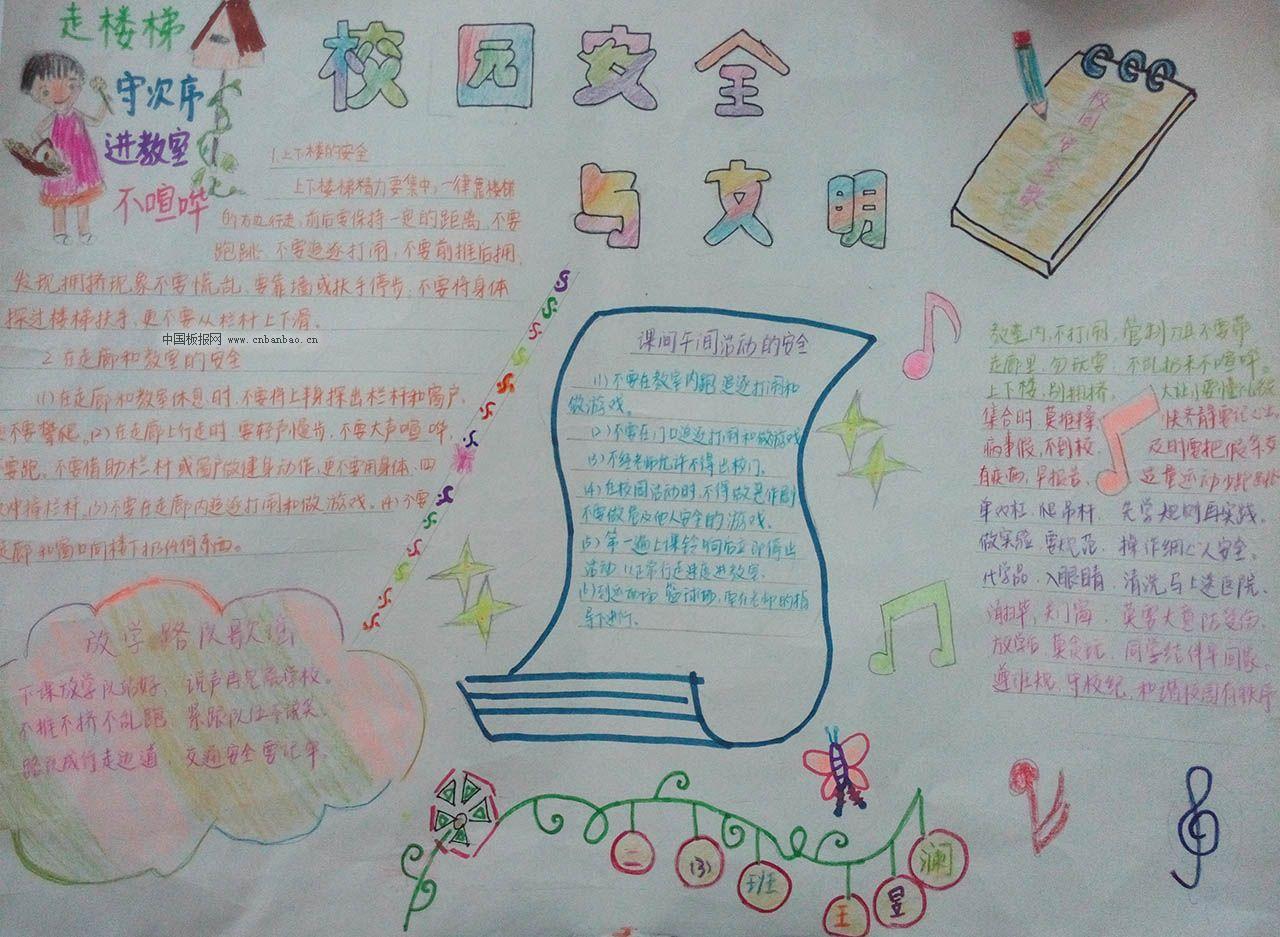 走楼梯
守次序
进教室
不喧哗
校园安全
与文明
校园安全歌
1.上下楼的安全
上下楼梯精力要集中,一律靠楼梯
的右边行走,前后要保持一定的距离,不要
跑跳、不要追逐打闹,不要前推后拥,
发现拥挤现象不要慌乱,要靠墙或扶手停步,不要将身体
探过楼梯扶手,更不要从栏杆上下滑。
中国板报网 www.cnbanbao.cn
2.在走廊和教室的安全
(1)在走廊和教室休息时,不要将上半身探出栏杆和窗户,
不要攀爬。(2)在走廊上行走时要轻声慢步,不要大声喧哗,
要跑。不要借助栏杆或窗户做健身动作,更不要用身体、四
冲撞栏杆。(3)不要在走廊内追逐打闹和做游戏。(4)不要
走廊和窗口向楼下扔任何东西。
放学路队歌谣
下课放学队站好,说声再见离学校。
不推不挤不乱跑,紧跟队伍不说笑。
路队成行走边道,交通安全要记牢。
课间午间活动的安全
(1)不要在教室内跑追逐打闹和
做游戏。
(2)不要在门口追逐打闹和做游戏
(3)不经老师允许不得出校门。
(4)在校园活动时,不得做恶作剧
不要做危及他人安全的游戏。
(5)第一遍上课铃响后立即停止
活动,以正常行走速度进教室。
(6)到运动场、篮球场,要在老师的指
导下进行。
教室内,不打闹,管制刀具不要带
走廊里,勿玩耍,不乱扔来不喧哗。
上下楼,别拥挤,
集合时 莫推操 快齐静要记心
病事假,不到校, 及时要把假条交
有疾病,早报告,
单双杠,爬吊杆,先学规则再实践。
做实验 要规范,操作细心人安全。
化学品,入眼睛,清洗马上送医院。
放学后,莫贪玩,同学结伴早回家。
遵班规,守校纪,和谐校园有秩序
二(3)班王昱澜